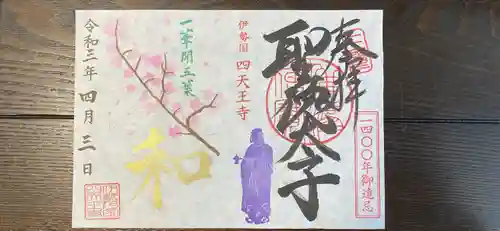 奉拝
一四〇〇年御遠忌
聖徳太子
伊勢国 四天王寺
一華開五葉
和
令和三年 四月 三日